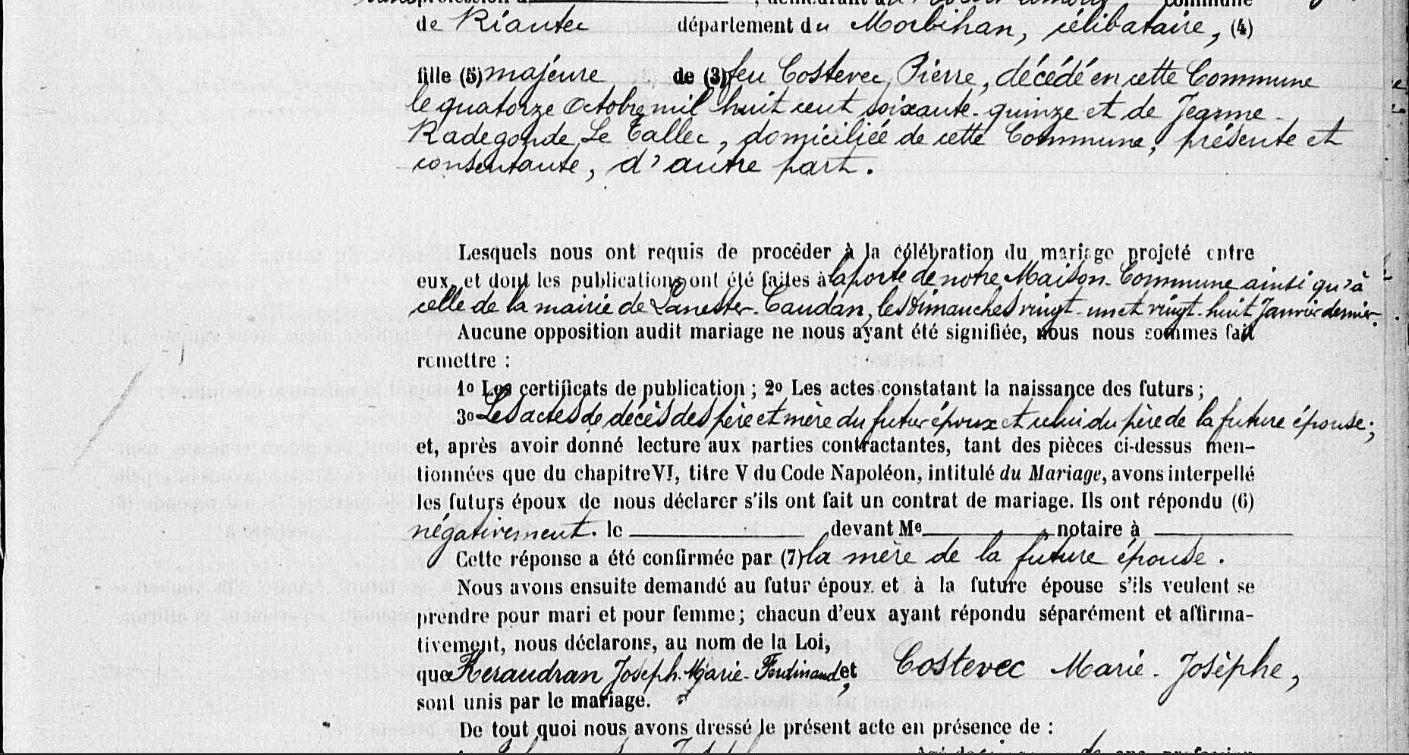 commune
de Riantec département du Morbihan, célibataire, (4)
fille (5) majeure de (3) feu Costevec, Pierre, décédé en cette Commune
le quatorze Octobre mil huit cent soixante-quinze et de Jeanne-
Radegonde Le Tallec, domiciliée de cette Commune, présente et
consentante, d'autre part.
Lesquels nous ont requis de procéder à la célébration du mariage projeté entre
eux, et dont les publications ont été faites à la porte de notre Maison-Commune ainsi qu'à
celle de la mairie de Lanester-Caudan, les Dimanches vingt-un et vingt-huit Janvier dernier.
Aucune opposition audit mariage ne nous ayant été signifiée, nous nous sommes fait
remettre :
1o Les certificats de publication ; 2o Les actes constatant la naissance des futurs ;
3o Les actes de décès des père et mère du futur époux et celui du père de la future épouse ;
et, après avoir donné lecture aux parties contractantes, tant des pièces ci-dessus men-
tionnées que du chapitre VI, titre V du Code Napoléon, intitulé du Mariage, avons interpellé
les futurs époux de nous déclarer s'ils ont fait un contrat de mariage. Ils ont répondu (6)
négativement. le devant Me notaire à
Cette réponse a été confirmée par (7) la mère de la future épouse.
Nous avons ensuite demandé au futur époux et à la future épouse s'ils veulent se
prendre pour mari et pour femme ; chacun d'eux ayant répondu séparément et affirma-
tivement, nous déclarons, au nom de la Loi,
que Keraudran Joseph-Marie-Ferdinand, et Costevec Marie-Josèphe,
sont unis par le mariage.
De tout quoi nous avons dressé le présent acte en présence de :